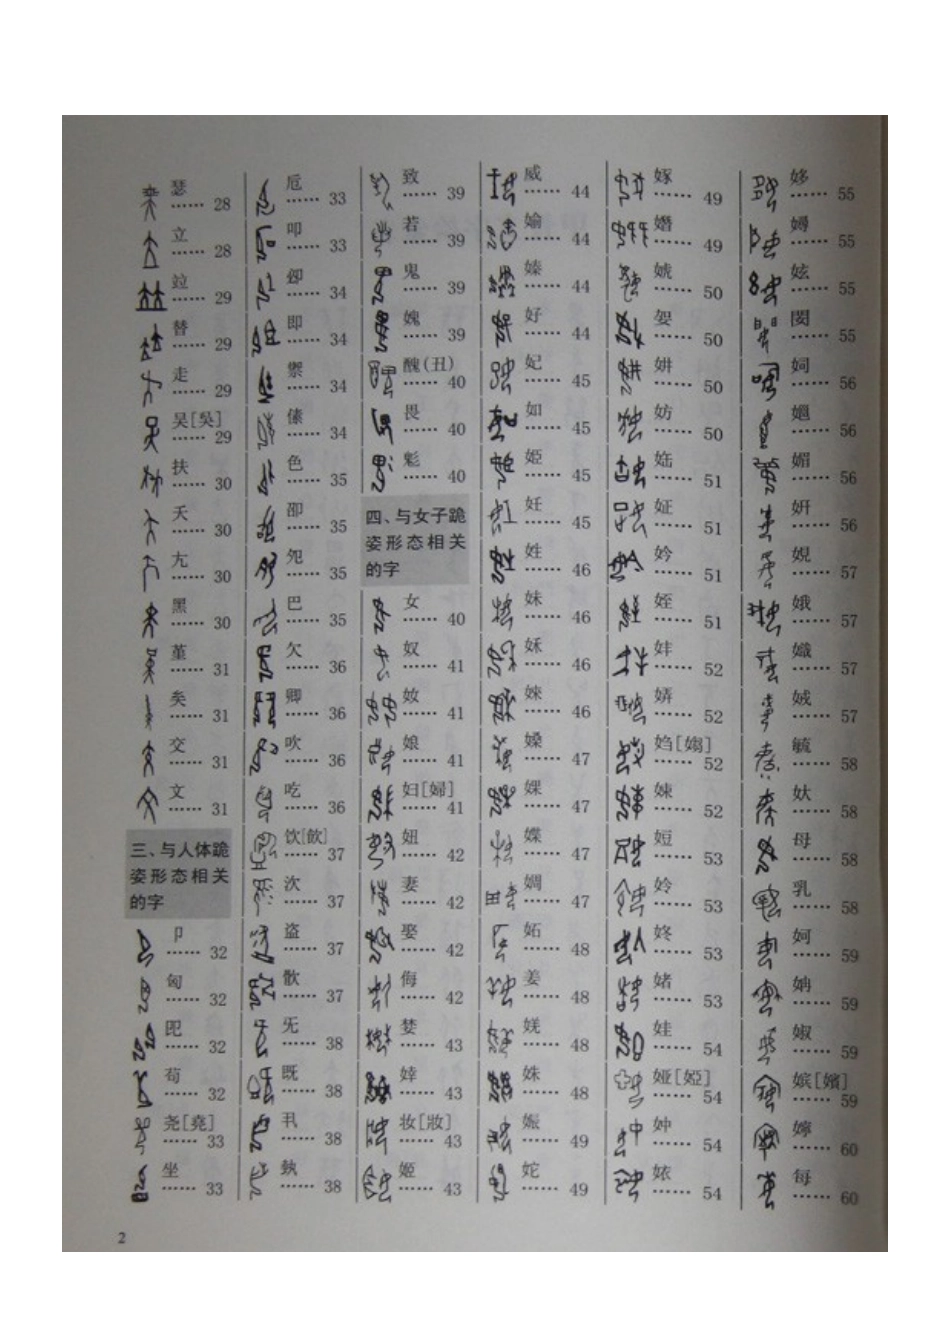 瑟 …… 28
立 …… 28
竝 …… 29
替 …… 29
走 …… 29
吴[吳] …… 29
扶 …… 30
夭 …… 30
亢 …… 30
黑 …… 30
堇 …… 31
矣 …… 31
交 …… 31
文 …… 31
三、与人体跪
姿形态相关
的字
卩 …… 32
匈 …… 32
…… 32
苟 …… 32
尧[堯] …… 33
坐 …… 33
卮 …… 33
叩 …… 33
卸 …… 34
即 …… 34
禦 …… 34
傣 …… 34
色 …… 35
卲 …… 35
夗 …… 35
巴 …… 35
欠 …… 36
卿 …… 36
吹 …… 36
吃 …… 36
饮[飲] …… 37
次 …… 37
盗 …… 37
歕 …… 37
旡 …… 38
既 …… 38
丮 …… 38
埶 …… 38
致 …… 39
若 …… 39
鬼 …… 39
媿 …… 39
醜(丑) …… 40
畏 …… 40
鬽 …… 40
四、与女子跪
姿形态相关
的字
女 …… 40
奴 …… 41
奻 …… 41
娘 …… 41
妇[婦] …… 41
妞 …… 42
妻 …… 42
娶 …… 42
侮 …… 42
婪 …… 43
婞 …… 43
妆[妝] …… 43
姬 …… 43
威 …… 44
媮 …… 44
嫀 …… 44
好 …… 44
妃 …… 45
如 …… 45
姫 …… 45
妊 …… 45
姓 …… 46
妹 …… 46
妚 …… 46
婡 …… 46
嫊 …… 47
婐 …… 47
媟 …… 47
婤 …… 47
妬 …… 48
姜 …… 48
媄 …… 48
姝 …… 48
娠 …… 49
妮 …… 49
嫁 …… 49
…… 49
婋 …… 50
妿 …… 50
妌 …… 50
妨 …… 50
…… 51
姃 …… 51
妗 …… 51
姪 …… 51
…… 52
…… 52
㛀[嫋] …… 52
娻 …… 52
…… 53
姈 …… 53
㚵 …… 53
媎 …… 53
娃 …… 54
娅[婭] …… 54
妕 …… 54
㛄 …… 54
姼 …… 55
…… 55
妶 …… 55
…… 55
…… 56
…… 56
媚 …… 56
妍 …… 56
娊 …… 57
娥 …… 57
…… 57
娀 …… 57
毓 …… 58
妖 …… 58
母 …… 58
乳 …… 58
妸 …… 59
…… 59
婌 …… 59
嫔[嬪] …… 59
嬣 …… 60
每 …… 60
2